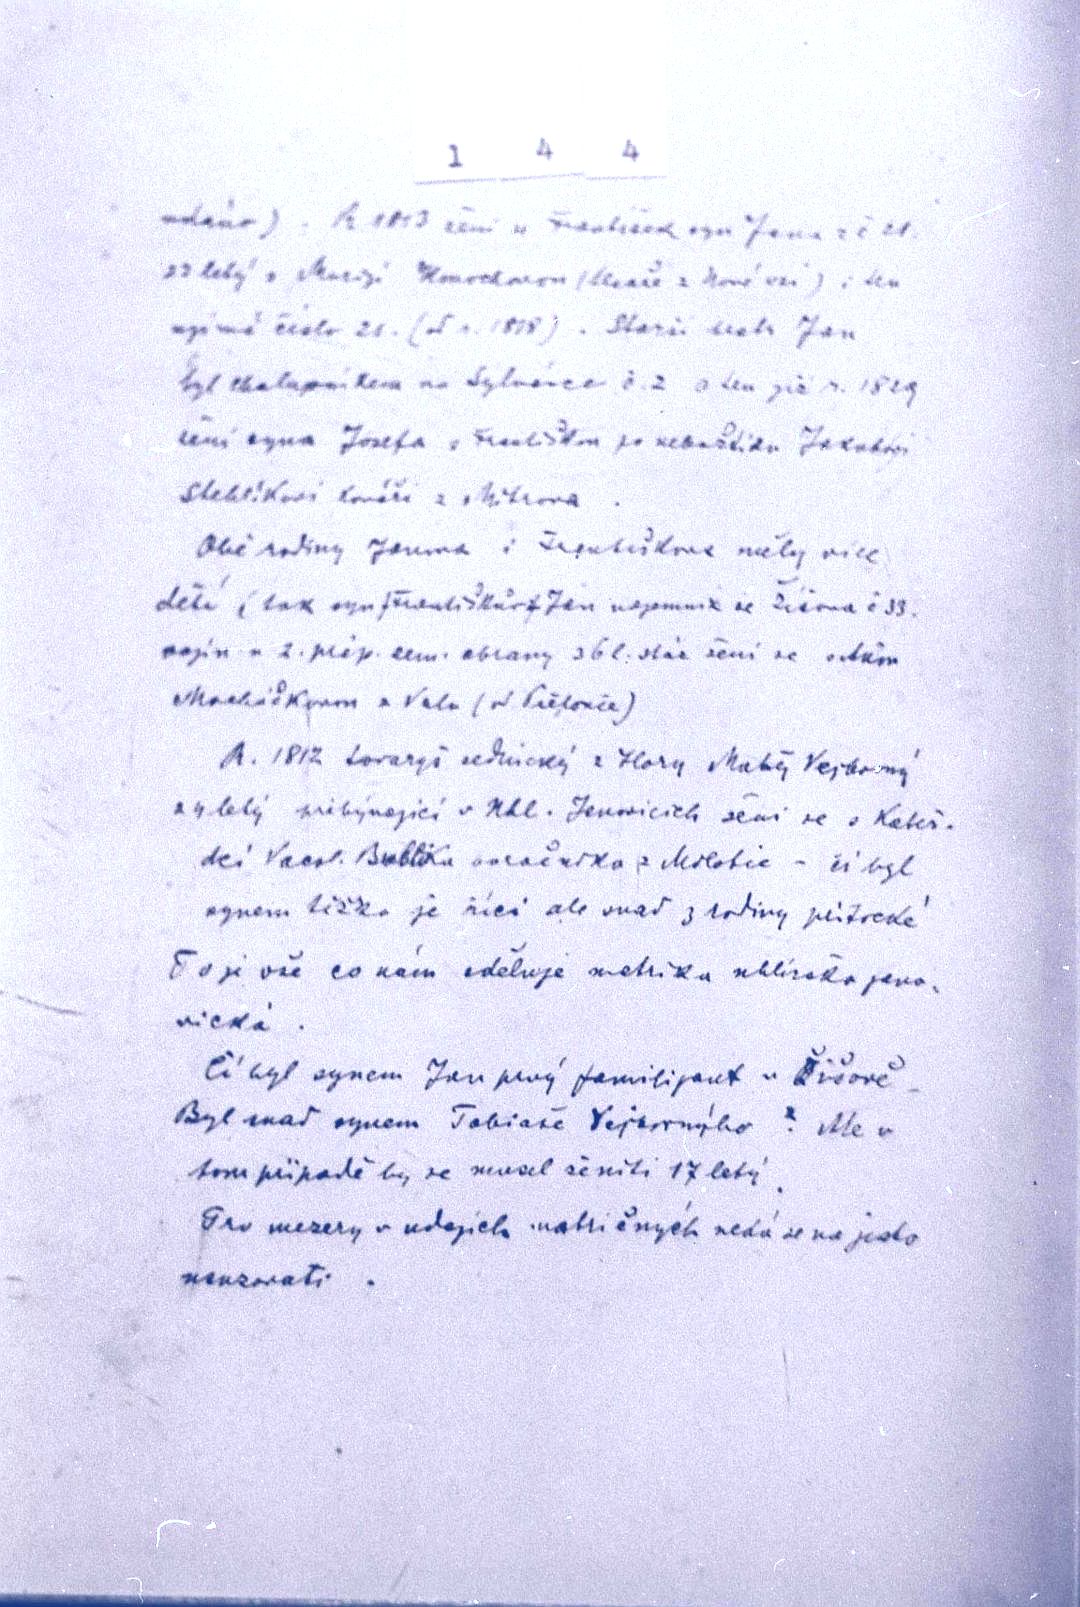 1 4 4
udáno). R 1813 žení se František syn Jana z č 21.
23 letý s Marií (tkáře z Nové vsi) i ten
ujímá číslo 21. (od r. 1818). Starší bratr Jan
byl chalupníkem na č. 2 a ten již r. 1829
žení syna Josefa s Františkou po nebožtíku Jakubovi
Stehlíkovi kováři z Mitrova.
Obě rodiny Janova i Františkova měly více
dětí (tak syn Františkův Jan nájemník ze Žišova č 33.
vojín u 2. prap. zem. obrany 36 l. stár žení se
Macháčkovou z
R. 1812 tovaryš z Hory Matěj Vejborný
24 letý přebývající v Uhl. Janovicích žení se s Kateř.
dcí Vacl. Bublíka z Milotic - čí byl
synem těžko je říci ale snad z rodiny přítocké
To je vše co nám sděluje matrika uhlířsko jano-
vická.
Čí byl synem Jan prvý familijant v Žišově
Byl snad synem Tobiáše Vejborného? Ale v
tom případě by se musel ženiti 17 letý.
Pro mezery v udajích matričných nedá se na jisto
usuzovati.